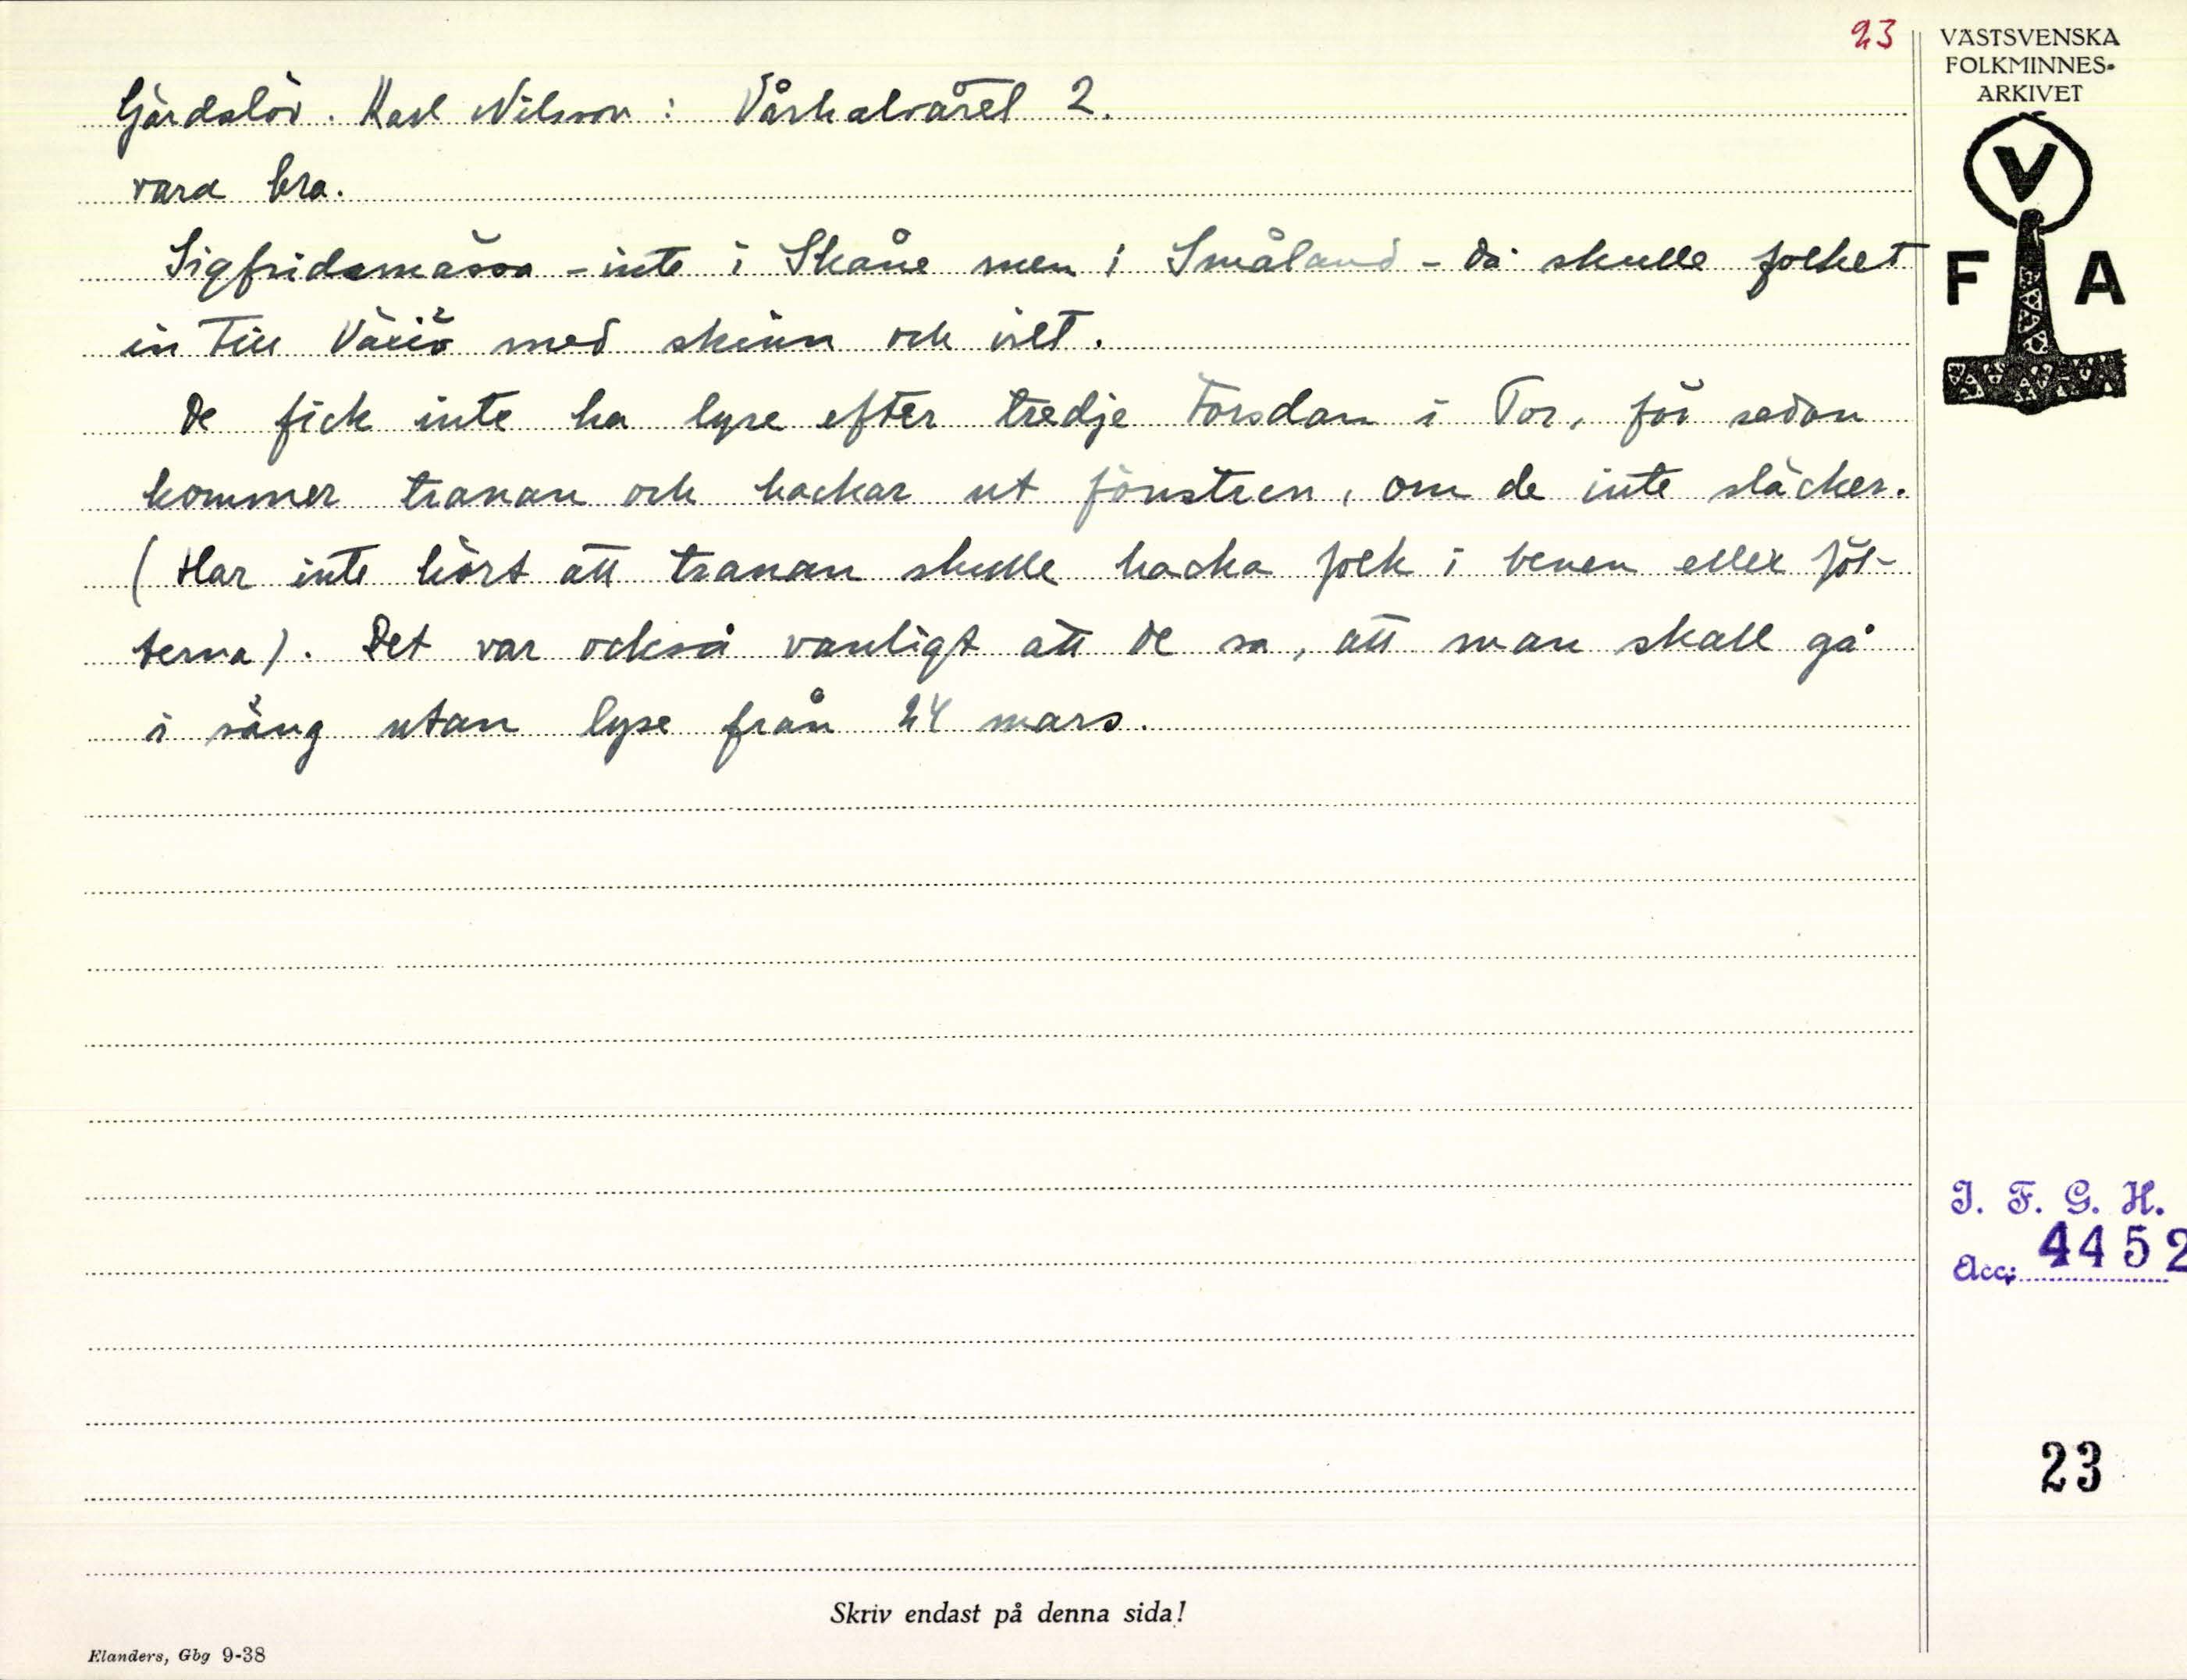 23
VÄSTSVENSKA
FOLKMINNES-
ARKIVET
V
F A
Gärdslöv. Karl Nilsson: Vårhalvåret 2.
vara bra.
Sigfridsmässa - inte i Skåne men i Småland - då skulle folket
in till Växiö med skinn och ilt.
De fick inte ha lyse efter tredje Torsdan i Tor, för sedan
kommer tranan och hackar ut fönstren, om de inte släcker.
(Har inte hört att tranan skulle hacka folk i benen eller föt-
terna). Det var också vanligt att de sa, att man skall gå
i säng utan lyse från 24 mars.
I. F. G. H.
Acc: 4452
23
Skriv endast på denna sida!
Elanders, Gbg 9-38